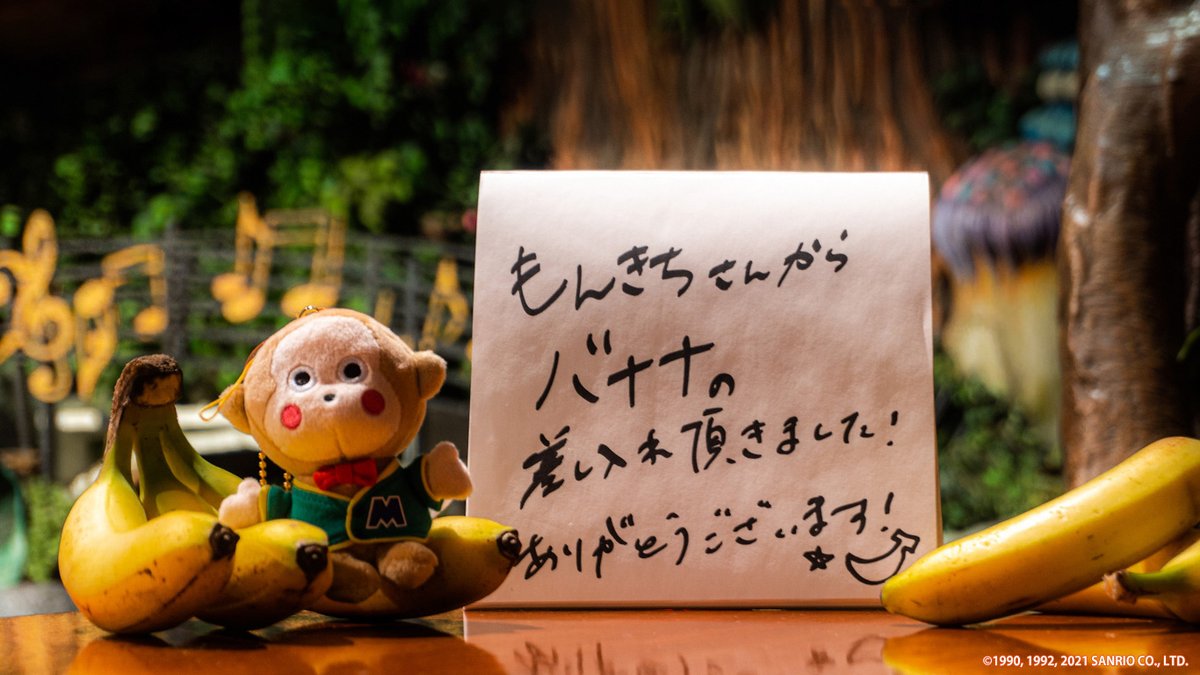 もんきちさんから
バナナの
差し入れ頂きました!
ありがとうございます!
M
©1990, 1992, 2021 SANRIO CO., LTD.